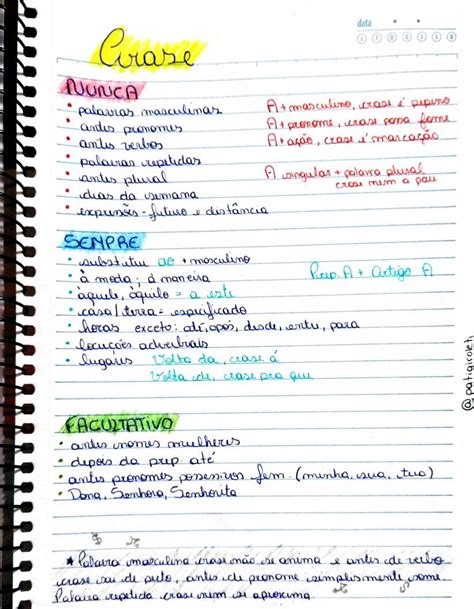 data
Crase
NUNCA
• palavras masculinas
A + masculino, crase é pepino
• antes pronomes
A + pronome, crase passa fome
• antes verbos
A + ação, crase é marcação
• palavras repetidas
• antes plural
A singular + palavra plural
crase nem a pau
• dias da semana
• expressões - futuro e distância
SEMPRE
• substitui ao + masculino
• à moda; à maneira
Prep. A + Artigo A
• àquele, àquilo = a este
• casa/terra = especificado
• horas exceto: até, após, desde, entre, para
• locuções adverbiais
• lugares Volta da, crase à
Volta de, crase pra que
@patigiroleti
FACULTATIVO
• antes nomes mulheres
• depois da prep até
• antes pronomes possessivos fem. (minha, sua, tua)
• Dona, Senhora, Senhorita
* Palavra masculina crase não se anima e antes de verbo
crase sai de perto, antes de pronome simplesmente some.
Palavra repetida crase nem se aproxima.